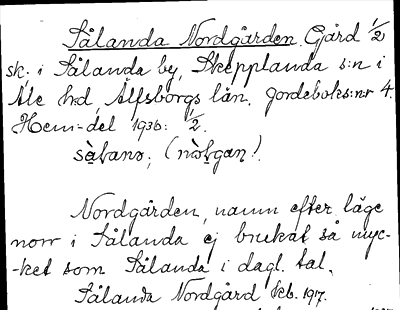 Sålanda Nordgården. Gård 1/2
sk. i Sålanda by, Skepplanda s:n i
Ale hd, Älfsborgs län. Jordeboks:nr 4.
Hem-del 1936: 1/2.
Nordgården, namn efter läge
norr i Sålanda ej brukat så myc-
-ket som Sålanda i dagl. tal.
Sålanda Nordgård kb. 1917.